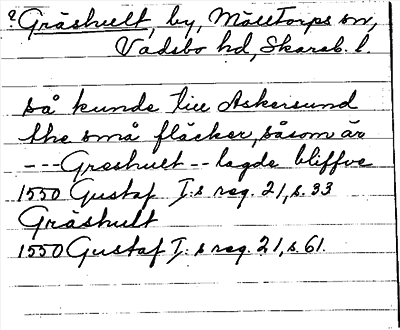 ? Gräshult, by, Mölltorps sn,
Vadsbo hd, Skarab. l.
så kunde till Askersund
the små fläcker, såsom är
--- Greshult -- lagde bliffve
1550 Gustaf I:s reg. 21, s. 33
Gräshult
1550 Gustaf I:s reg. 21, s. 61.